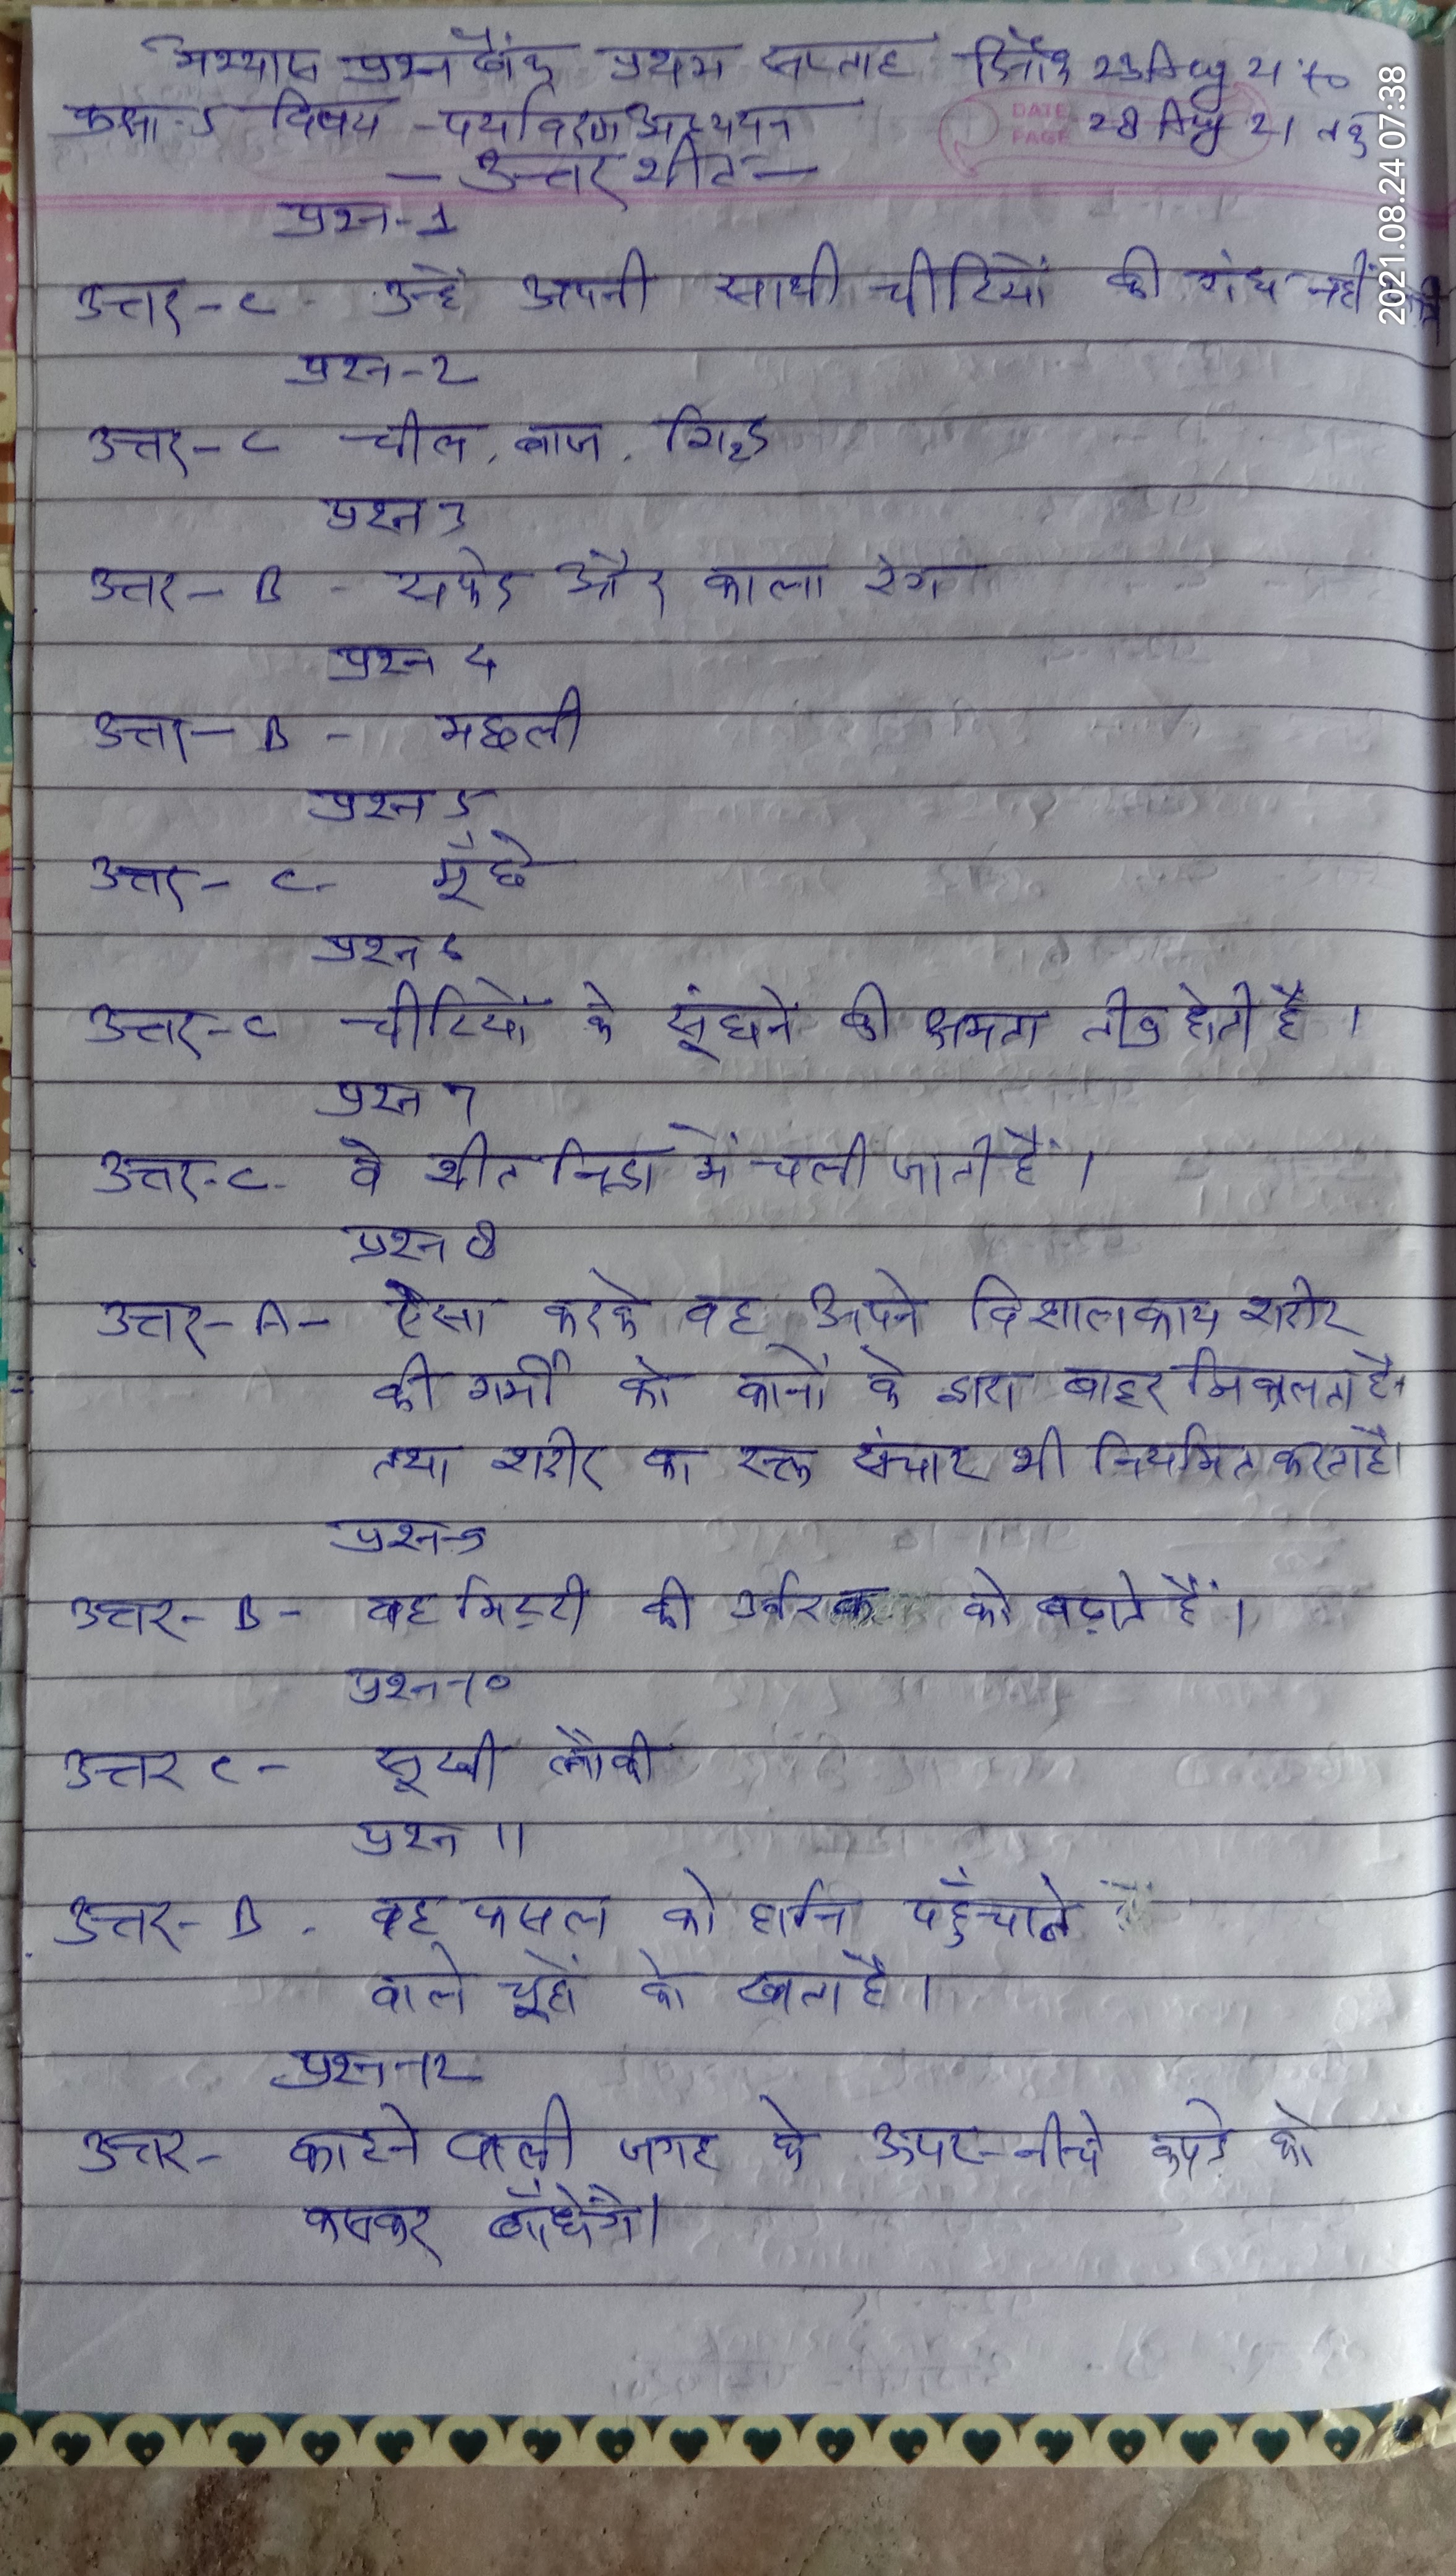 अभ्यास प्रश्न बैंक प्रथम सप्ताह दिनाँक 23 Aug 21 to
कक्षा-5 विषय - पर्यावरण अध्ययन 28 Aug 21 तक
DATE
PAGE
- उत्तर शीट -
2021.08.24 07:38
प्रश्न-1
उत्तर - C - उन्हें अपनी साथी चीटियों की गंध नहीं
प्रश्न-2
उत्तर - C चील, बाज, गिद्ध
प्रश्न 3
उत्तर - B - सफेद और काला रंग
प्रश्न 4
उत्तर - B - मछली
प्रश्न 5
उत्तर - C - मूँछे
प्रश्न 6
उत्तर - C चीटियों के सूंघने की क्षमता तीव्र होती है ।
प्रश्न 7
उत्तर - C - वे शीत निद्रा में चली जाती हैं ।
प्रश्न 8
उत्तर - A - ऐसा करके वह अपने विशालकाय शरीर
की गर्मी को कानों के द्वारा बाहर निकालता है
तथा शरीर का रक्त संचार भी नियमित करता है।
प्रश्न-9
उत्तर - B - वह मिट्टी की उर्वरक को बढ़ाते हैं ।
प्रश्न-10
उत्तर C - सूखी लौकी
प्रश्न 11
उत्तर - B - वह फसल को हानि पहुँचाने
वाले चूहों को खाता है ।
प्रश्न-12
उत्तर - काटने वाली जगह के ऊपर-नीचे कपड़े को
कसकर बाँधेंगे।